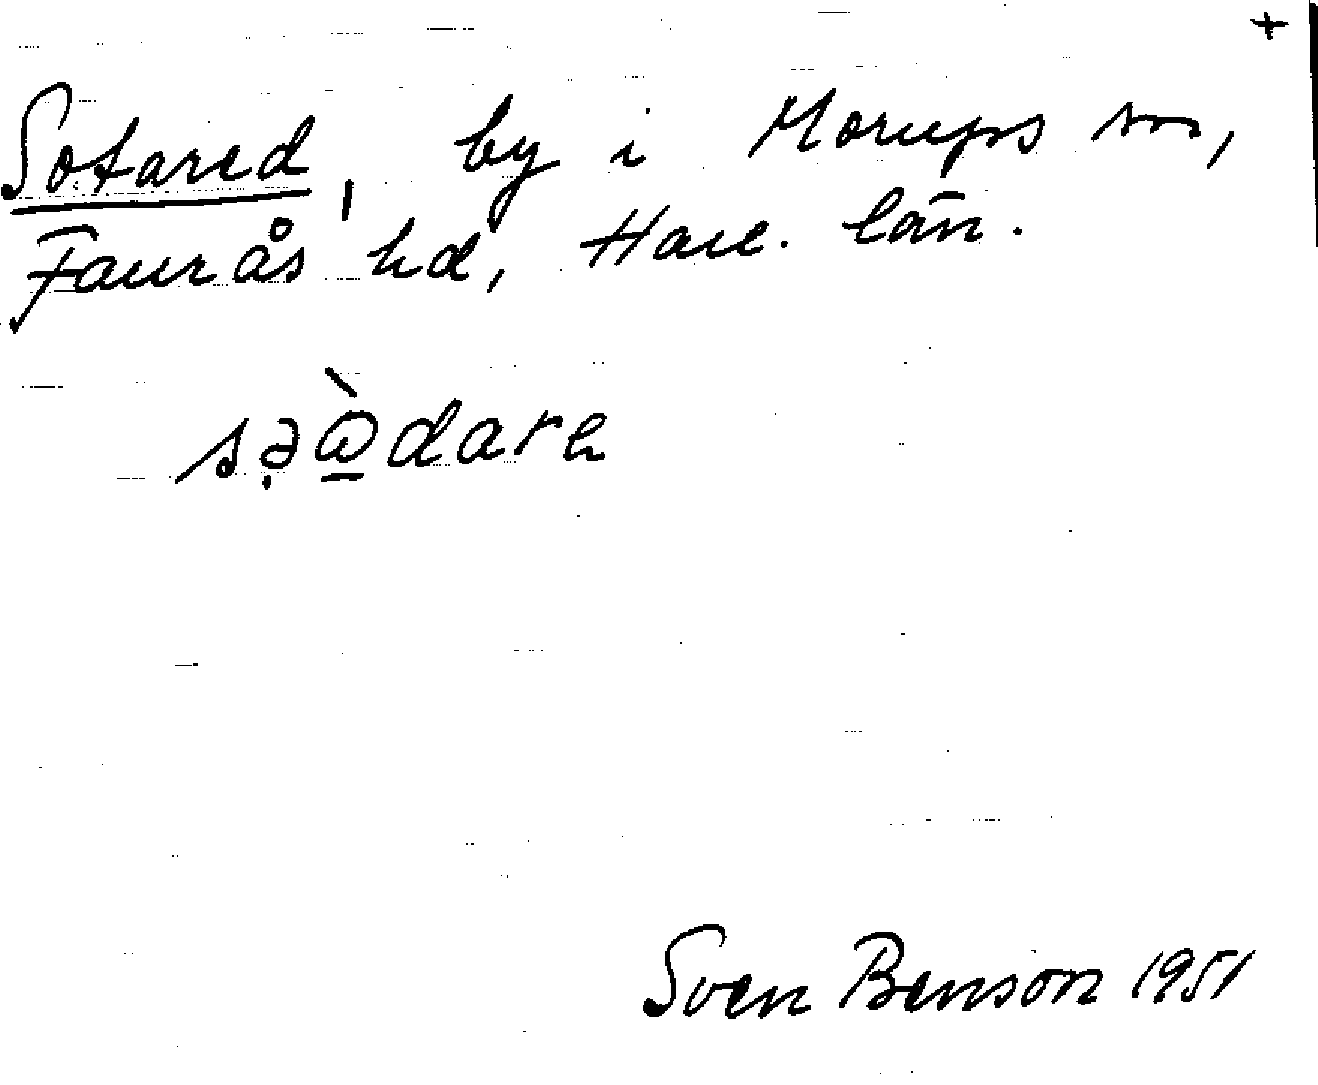 +
Sotared, by i Morups sn,
Faurås hd, Hall. län.
Sven Benson 1951